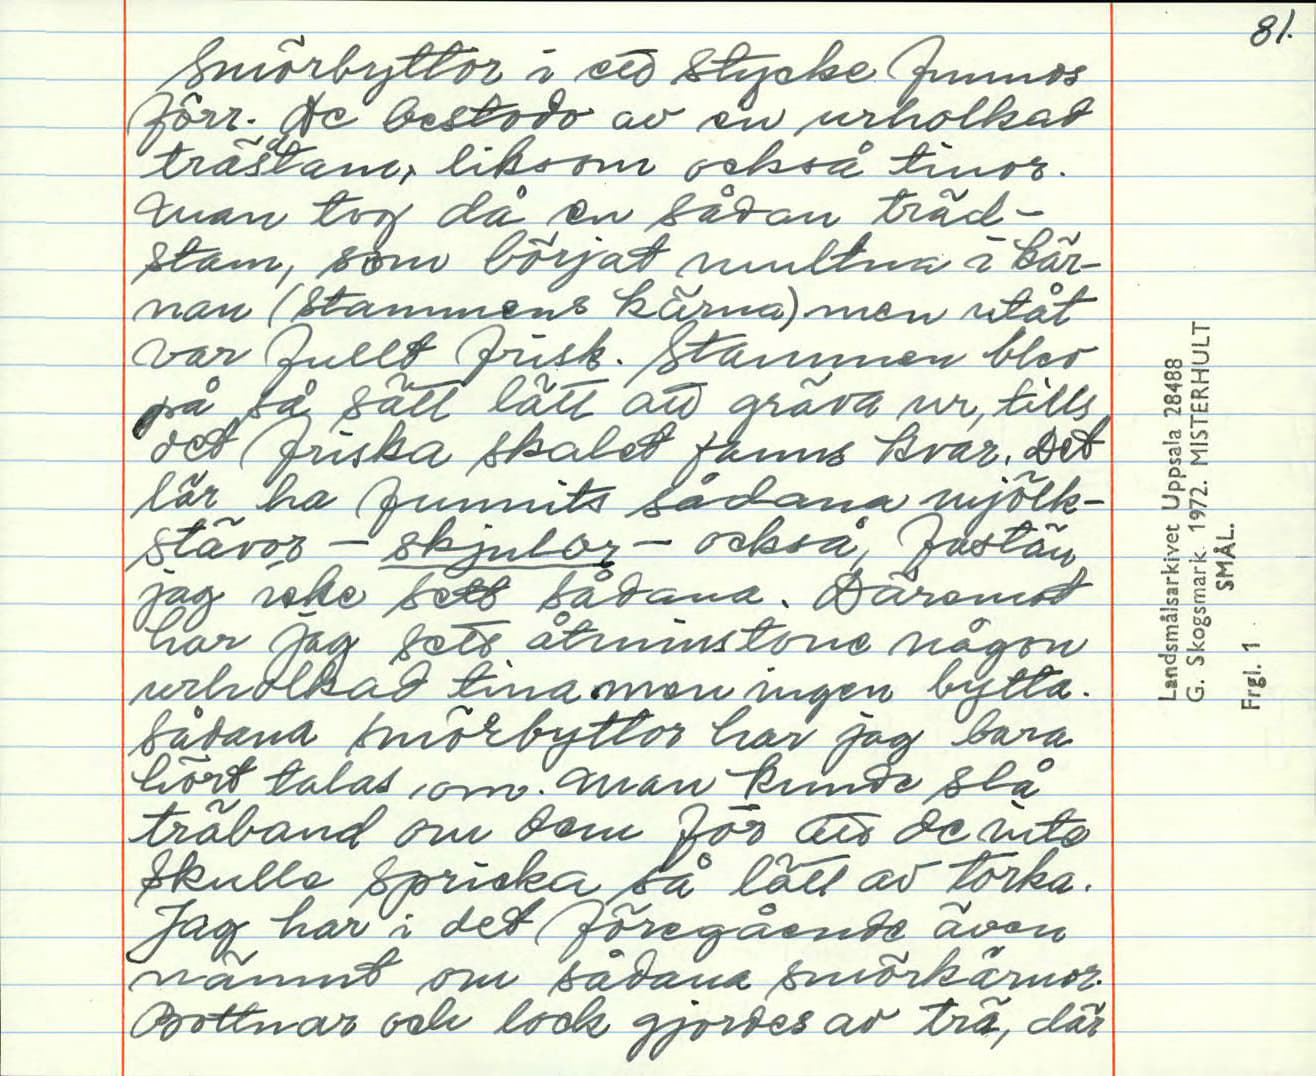 81.
Smörbyttor i ett stycke funnos
förr. De bestodo av en urholkad
trästam, liksom också tinor.
Man tog då en sådan träd-
stam, som börjat multna i kär-
nan (stammens kärna) men utåt
var fullt frisk. Stammen blev
på så sätt lätt att gräva ur, tills
det friska skalet fanns kvar. Det
lär ha funnits sådana mjölk-
stävor – skjulor – också, fastän
jag icke sett sådana. Däremot
har jag sett åtminstone någon
urholkad tina men ingen bytta.
Sådana smörbyttor har jag bara
hört talas om. Man kunde slå
träband om dem för att de inte
skulle spricka så lätt av torka.
Jag har i det föregående även
nämnt om sådana smörkärnor.
Bottnar och lock gjordes av trä, där
Landsmålsarkivet Uppsala 28488
G. Skogsmark. 1972. MISTERHULT
SMÅL.
Frgl. 1